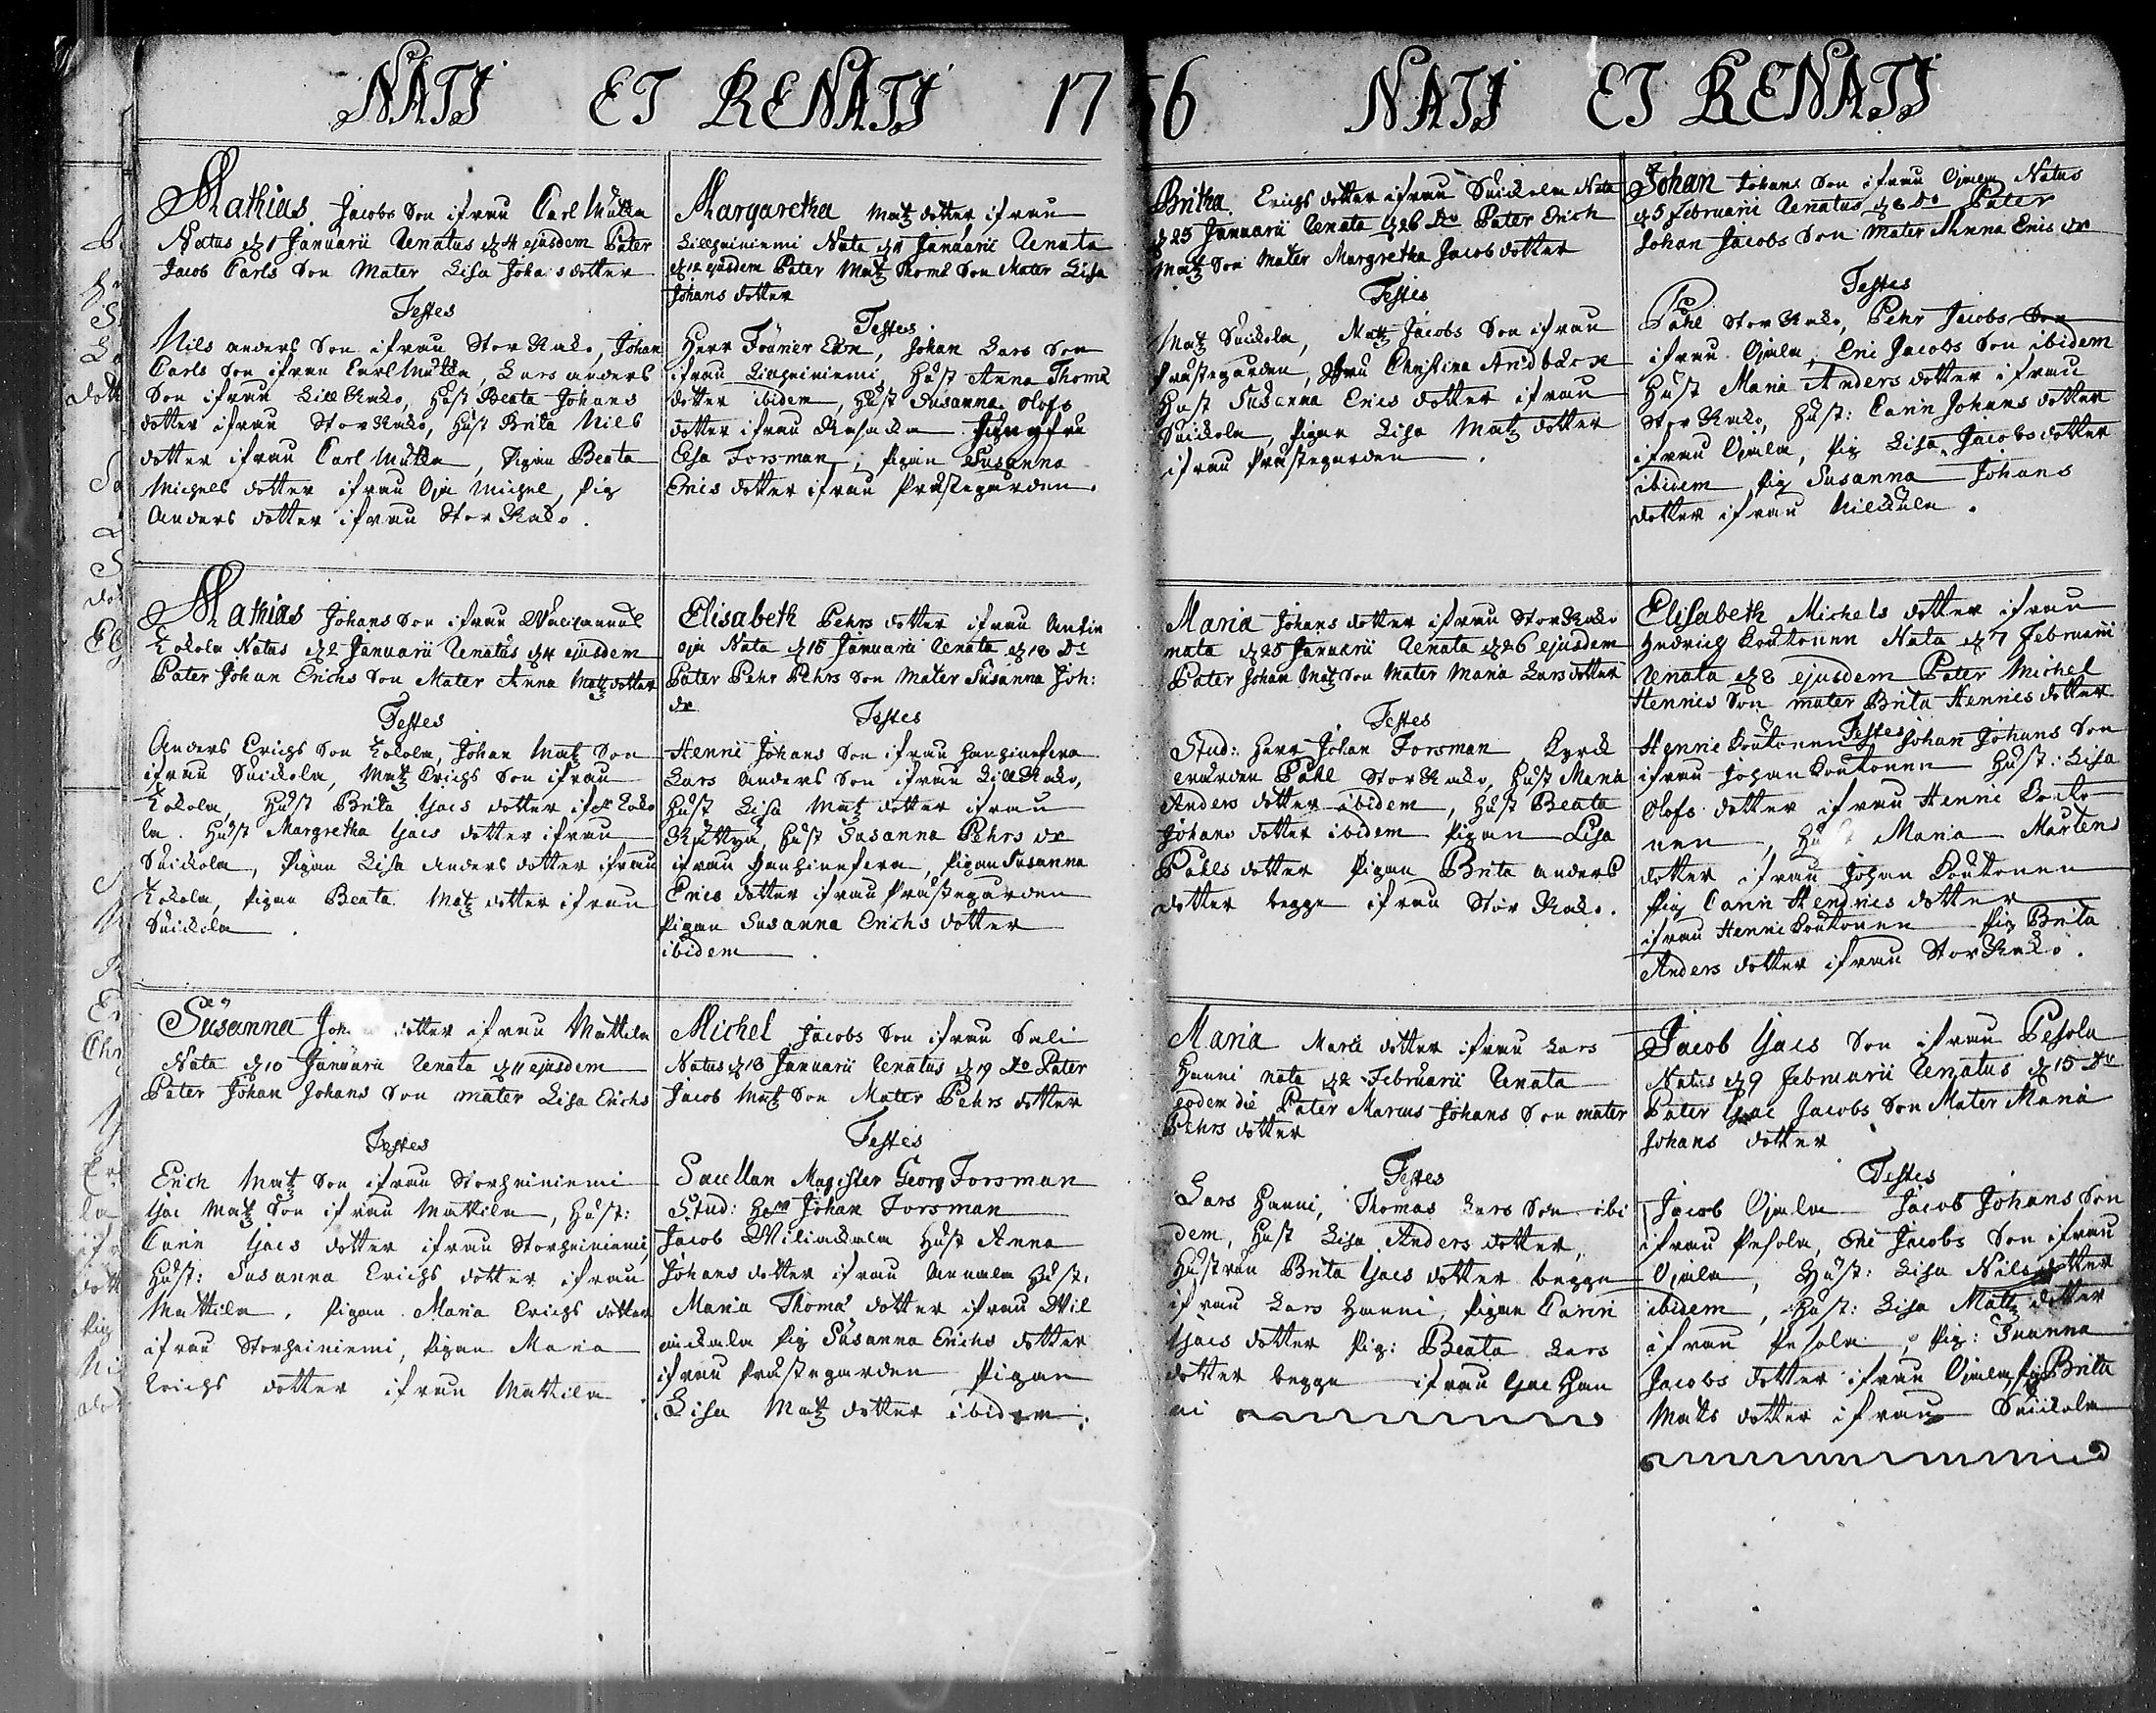 NATI ET RENATI 17
56 NATI ET RENATI
Mathias Jacobs Son ifrån Carl Mutka
Natus d 1 Januarii Renatus d 4 ejusdem Pater
Jacob Carls Son Mater Lisa Johansdotter
Testes
Nils anders Son ifrån Stor Kako, Johan
Carls Son ifrån Carl Mutka, Lars anders
Son ifrån Lill Kako, Hust Beata Johans
dotter ifrån Stor Kako, Hust Brita Nils
dotter ifrån Carl Mutka, Pigan Beata
Michels dotter ifrån Oja Michel, Pig
Anders dotter ifrån Stor Kako.
Mathias Johans Son ifrån
Kokola Natus d 2 Januarii Renatus d 4 ejusdem
Pater Johan Erichs Son Mater Anna Matz dotter
Testes
Anders Erichs Son Kokola, Johan Matz Son
ifrån Suickola, Matz Erichs Son ifrån
Kokola, Hust Brita Ijacs dotter ifrn Koko
la. Hust Margretha Ijacs dotter ifrån
Suickola, Pigan Lisa Anders dotter ifrån
Kokola, Pigan Beata Matz dotter ifrån
Suickola.
Susanna dotter ifrån Mattila
Nata d 10 Januarii Renata d 11 ejusdem
Pater Johan Johans Son mater Lisa Erichs
Testes
Erich Matz Son ifrån Storheiniemi
Ijac Matz Son ifrån Mattila, Hust:
Carin Ijacs dotter ifrån Storheiniemi,
Hust: Susanna Erichs dotter ifrån
Mattila, Pigan Maria Erichs dotter
ifrån Storheiniemi, Pigan Maria
Erichs dotter ifrån Mattila
Margaretha Matz dotter ifrån
Lillheiniemi Nata d Januarii Renata
d 12 ejusdem Pater Matz Thoms Son Mater Lisa
Johans dotter
Testes
Herr Johan Lars Son
ifrån Lillheiniemi, Hust Anna Thoms
dotter ibidem, Hust Susanna Olofs
dotter ifrån Jungfru
Elsa Forsman, Pigan Susanna
Erics dotter ifrån Prästegården.
Elisabeth Pehrs dotter ifrån Antin
oja Nata d 15 Januarii Renata d 18 Do
Pater Pehr Pehrs Son Mater Susanna Joh:
dr
Testes
Henric Johans Son ifrån
Lars Anders Son ifrån Lill Kako,
Hust Lisa Matz dotter ifrån
Hust Susanna Pehrs dr
ifrån Pigan Susanna
Erics dotter ifrån Prästegården
Pigan Susanna Erichs dotter
ibidem.
Michel Jacobs Son ifrån Sali
Natus d 18 Januarii Renatus d 19 Do Pater
Jacob Matz Son Mater Pehrs dotter
Testes
Sacellan Magister Georg Forsman
Stud: Herr Johan Forsman
Jacob Hust Anna
Johans dotter ifrån Annala Hust.
Maria Thoms dotter ifrån Wil
Pig Susanna Erichs dotter
ifrån Prästegården Pigan
Lisa Matz dotter ibidem.
Britha Erichs dotter ifrån Suickola Nata
d 25 Januarii Renata d 26 Do Pater Erich
Matz Son Mater Margretha Jacob dotter
Testes
Matz Suickola, Matz Jacobs Son ifrån
Prästegården, Fru Christina
Hust Susanna Erics dotter ifrån
Suickola, Pigan Lisa Matz dotter
ifrån Prästegården.
Maria Johans dotter ifrån Stor Kako
nata d 25 Januarii Renata d 26 ejusdem
Pater Johan Matz Son Mater Maria Lars dotter
Testes
Stud: Herr Johan Forsman Kyrck
wärden Påhl Stor Kako, Hust Maria
Anders dotter ibidem, Hust Beata
Johans dotter ibidem Pigan Lisa
Påhls dotter Pigan Brita anders
dotter begge ifrån Stor Kako.
Maria Marci dotter ifrån Lars
Hanni nata d 2 Februarii Renata
eodem die Pater Marcus Johans Son mater
Pehrs dotter
Testes
Lars Hanni, Thomas Lars Son ibi
dem, Hust Lisa Anders dotter,
Hustrun Brita Ijacs dotter begge
ifrån Lars Hanni, Pigan Carin
Ijacs dotter Pig: Beata Lars
dotter begge ifrån Ijac Han
ni
Johan Johans Son ifrån Ojala Natus
d 5 Februarii Renatus d 8 Do Pater
Johan Jacobs Son Mater Anna Erics dr
Testes
Påhl Stor Kako, Pehr Jacobs Son
ifrån Ojala, Eric Jacobs Son ibidem
Hust Maria Anders dotter ifrån
Stor Kako, Hust: Carin Johans dotter
ifrån Ojala, Pig Lisa Jacobs dotter
ibidem Pig Susanna Johans
dotter ifrån
Elisabeth Michels dotter ifrån
Hindrich Koukonen Nata d 7 Februarii
Renata d 8 ejusdem Pater Michel
Henrics Son mater Brita Henrics dotter
Testes
Henric Koukonen Johan Johans Son
ifrån Johan Koukonen Hust: Lisa
Olofs dotter ifrån Henric Kouko
nen, Maria Mårtens
dotter ifrån Johan Koukonen
Pig Carin Hendrics dotter
ifrån Henric Koukonen Pig Brita
Anders dotter ifrån Stor Kako.
Jacob Ijacs Son ifrån Pesola
Natus d 9 Februarii Renatus d 15 Do
Pater Ijac Jacobs Son Mater Maria
Johans dotter
Testes
Jacob Ojala Jacob Johans Son
ifrån Pesola, Eric Jacobs Son ifrån
Ojala, Hust: Lisa Nils dotter
ibidem, Hust: Lisa Matz dotter
ifrån Pesola, Pig: Susanna
Jacobs dotter ifrån Ojala, Pig Brita
Mats dotter ifrån Suickola